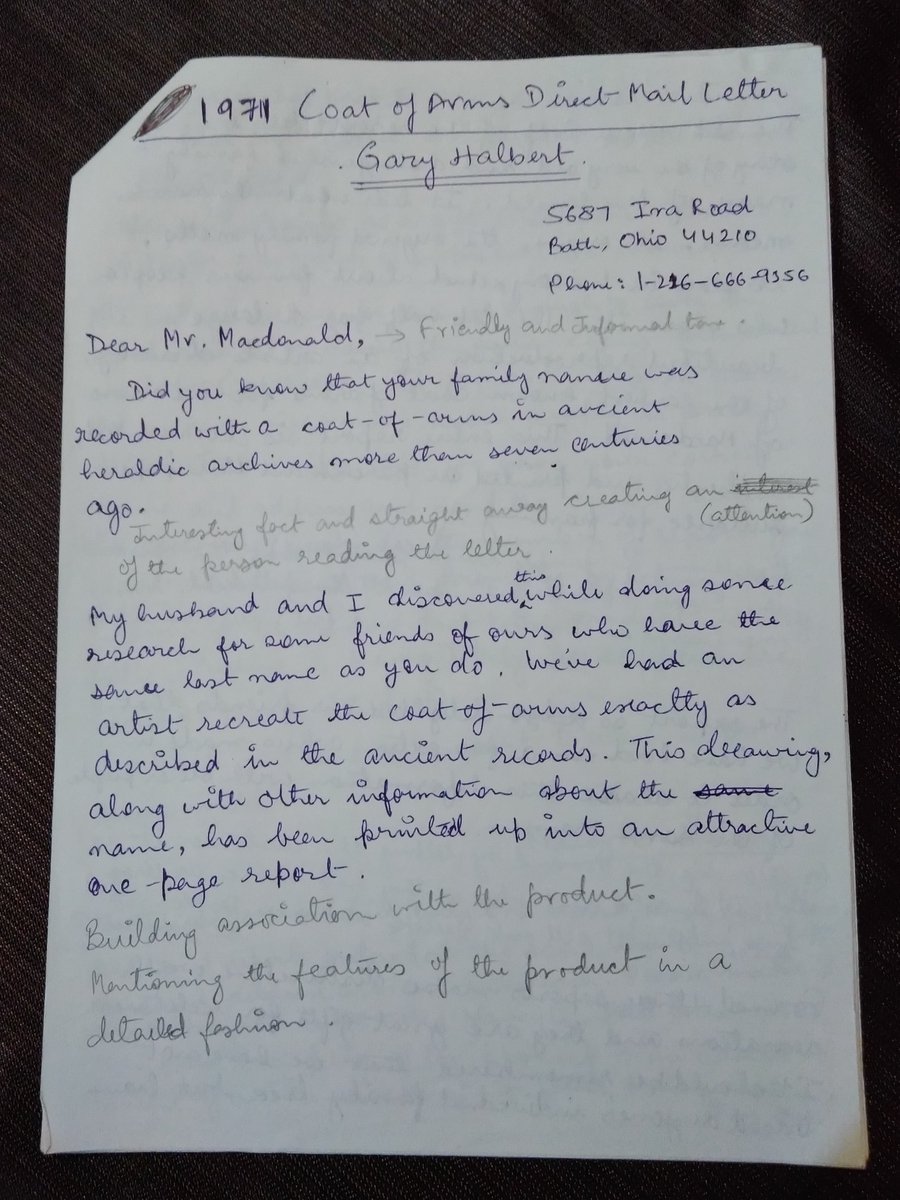 1971 Coat of Arms Direct Mail Letter
. Gary Halbert .
5687 Ira Road
Bath, Ohio 44210
Phone: 1-216-666-9356
Dear Mr. Macdonald, → Friendly and Informal tone.
Did you know that your family name was
recorded with a coat-of-arms in ancient
heraldic archives more than seven centuries
ago.
Interesting fact and straight away creating an interest
(attention)
of the person reading the letter.
My husband and I discovered this while doing some
research for some friends of ours who have the
same last name as you do. We've had an
artist recreate the coat-of-arms exactly as
described in the ancient records. This drawing,
along with other information about the same
name, has been printed up into an attractive
one-page report.
Building association with the product.
Mentioning the features of the product in a
detailed fashion.